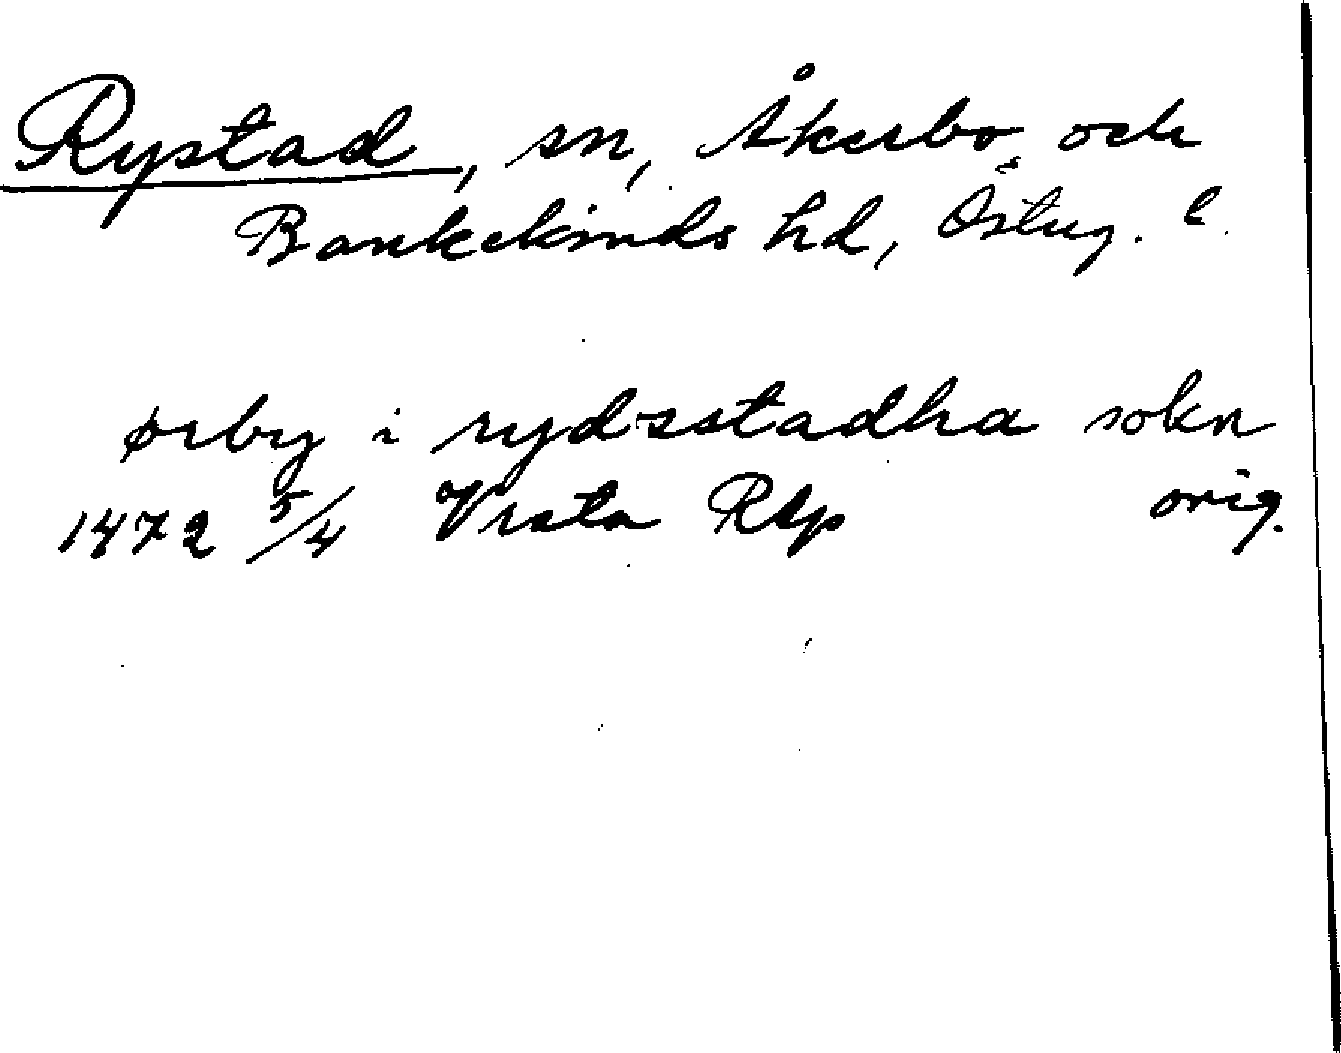 Rystad, sn, Åkerbo och
Bankekinds hd, Österg. l.
ørby i rydzstadha sokn
1472 5/4 Vreta RAp orig.